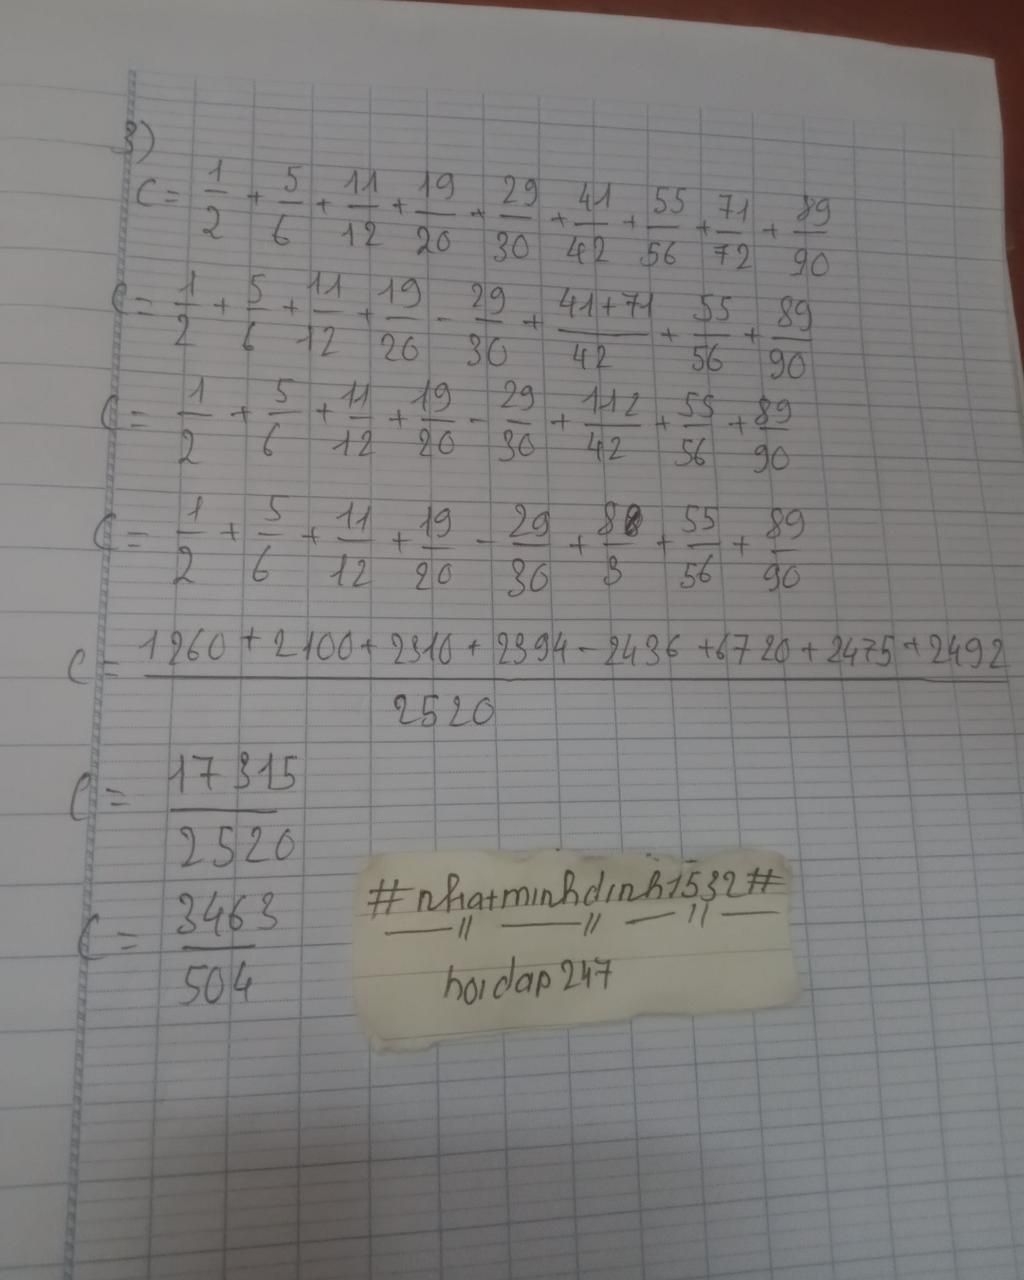 3)
C = 1/2 + 5/6 + 11/12 + 19/20 + 29/30 + 41/42 + 55/56 + 71/72 + 89/90
C = 1/2 + 5/6 + 11/12 + 19/20 - 29/30 + 41+71/42 + 55/56 + 89/90
C = 1/2 + 5/6 + 11/12 + 19/20 - 29/30 + 112/42 + 55/56 + 89/90
C = 1/2 + 5/6 + 11/12 + 19/20 - 29/30 + 8/3 + 55/56 + 89/90
C = 1260 + 2100 + 2310 + 2394 - 2436 + 6720 + 2475 + 2492 / 2520
C = 17315/2520
C = 3463/504
#nhatminhdinh1532#
hoidap247